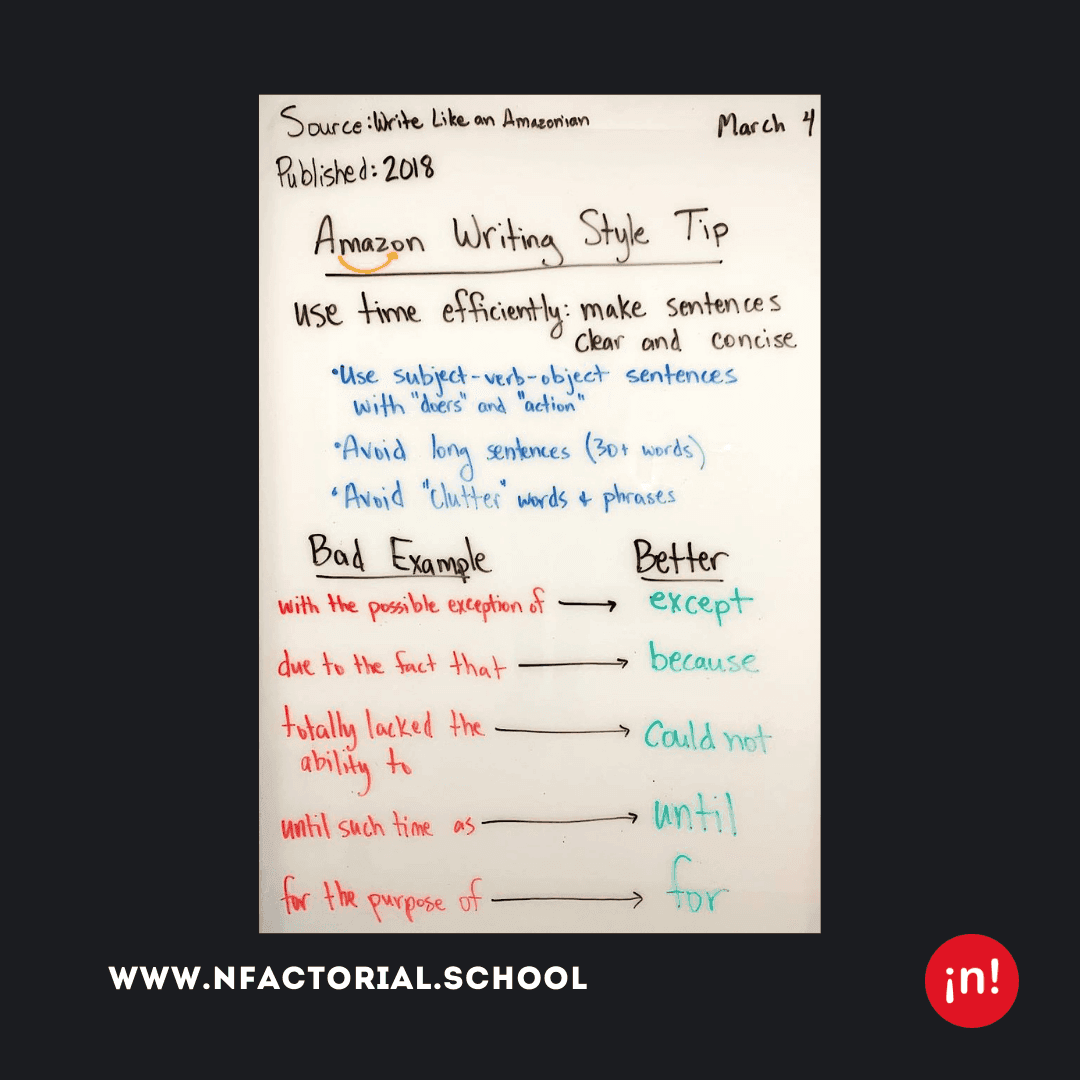 Source: Write Like an Amazonian
March 4
Published: 2018
Amazon Writing Style Tip
use time efficiently: make sentences
clear and concise
•Use subject-verb-object sentences
with "doers" and "action"
•Avoid long sentences (30+ words)
•Avoid "Clutter" words + phrases
Bad Example
Better
with the possible exception of → except
due to the fact that → because
totally lacked the → Could not
ability to
until such time as → until
for the purpose of → for
WWW.NFACTORIAL.SCHOOL
¡n!